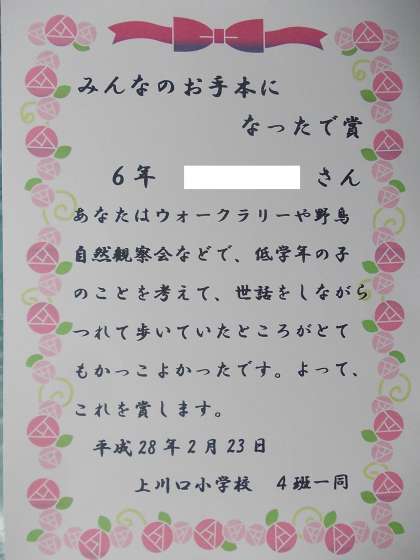 みんなのお手本に
なったで賞
6年 さん
あなたはウォークラリーや野鳥
自然観察会などで、低学年の子
のことを考えて、世話をしながら
つれて歩いていたところがとて
もかっこよかったです。よって、
これを賞します。
平成28年2月23日
上川口小学校 4班一同